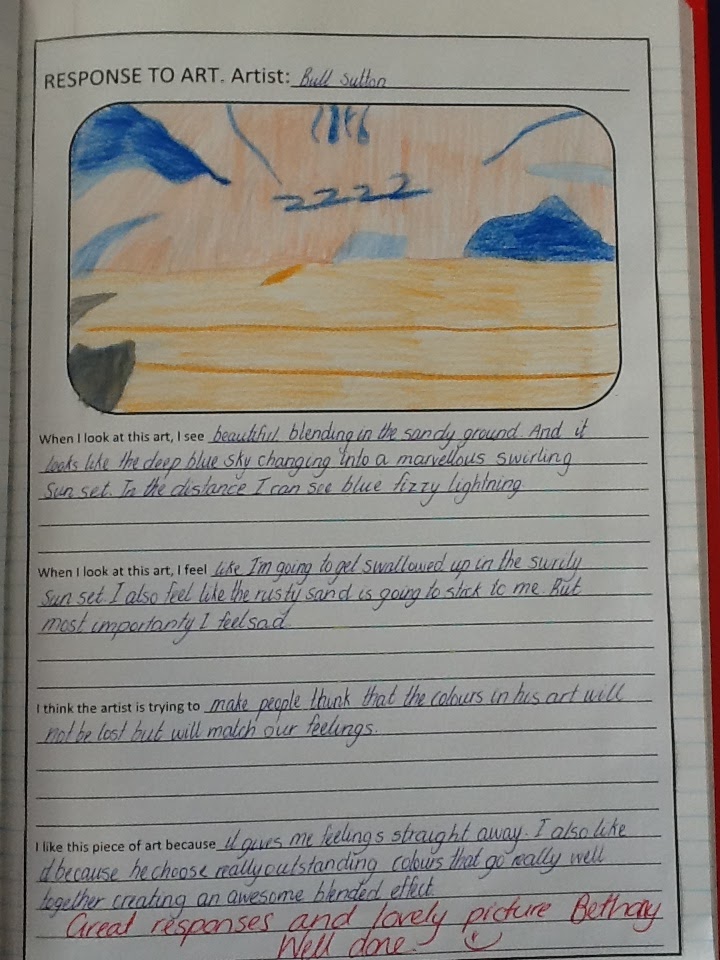 RESPONSE TO ART. Artist: Bull Sutton
2222
When I look at this art, I see beautiful blending in the sandy ground. And it
looks like the deep blue sky changing into a marvellous swirling
Sun set. In the distance I can see blue fizzy lightning.
When I look at this art, I feel like I'm going to get swallowed up in the swirly
Sun set. I also feel like the rusty sand is going to stick to me. But
most importanty I feel sad.
I think the artist is trying to make people think that the colours in his art will
not be lost but will match our feelings.
I like this piece of art because it gives me feelings straight away. I also like
it because he choose really outstanding colours that go really well
together creating an awesome blended effect.
Great responses and lovely picture Bethany
Well done.